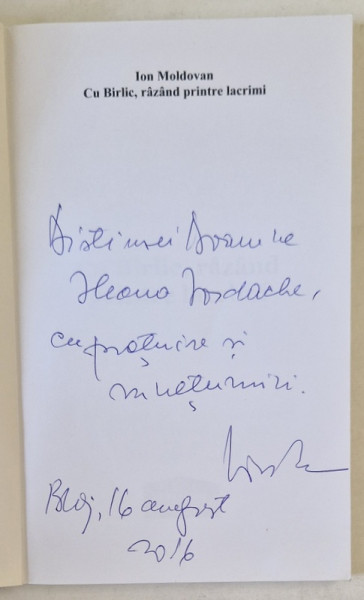 Ion Moldovan
Cu Birlic, râzând printre lacrimi
Distinsei Doamne
Ileana Iordache,
cu prețuire și
mulțumiri.
Blaj, 16 august
2016